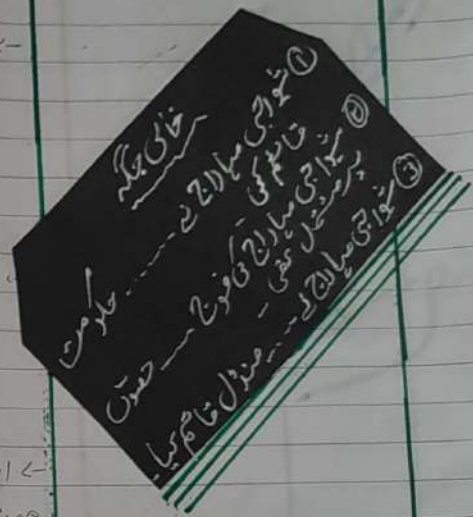 خالی جگہ
① شیواجی مہاراج نے ...... حکومت
قائم کی۔
② شیواجی مہاراج کی فوج ــــ حصوں
پر مشتمل تھی۔
③ شیواجی مہاراج نے .... منڈل قائم کیا۔